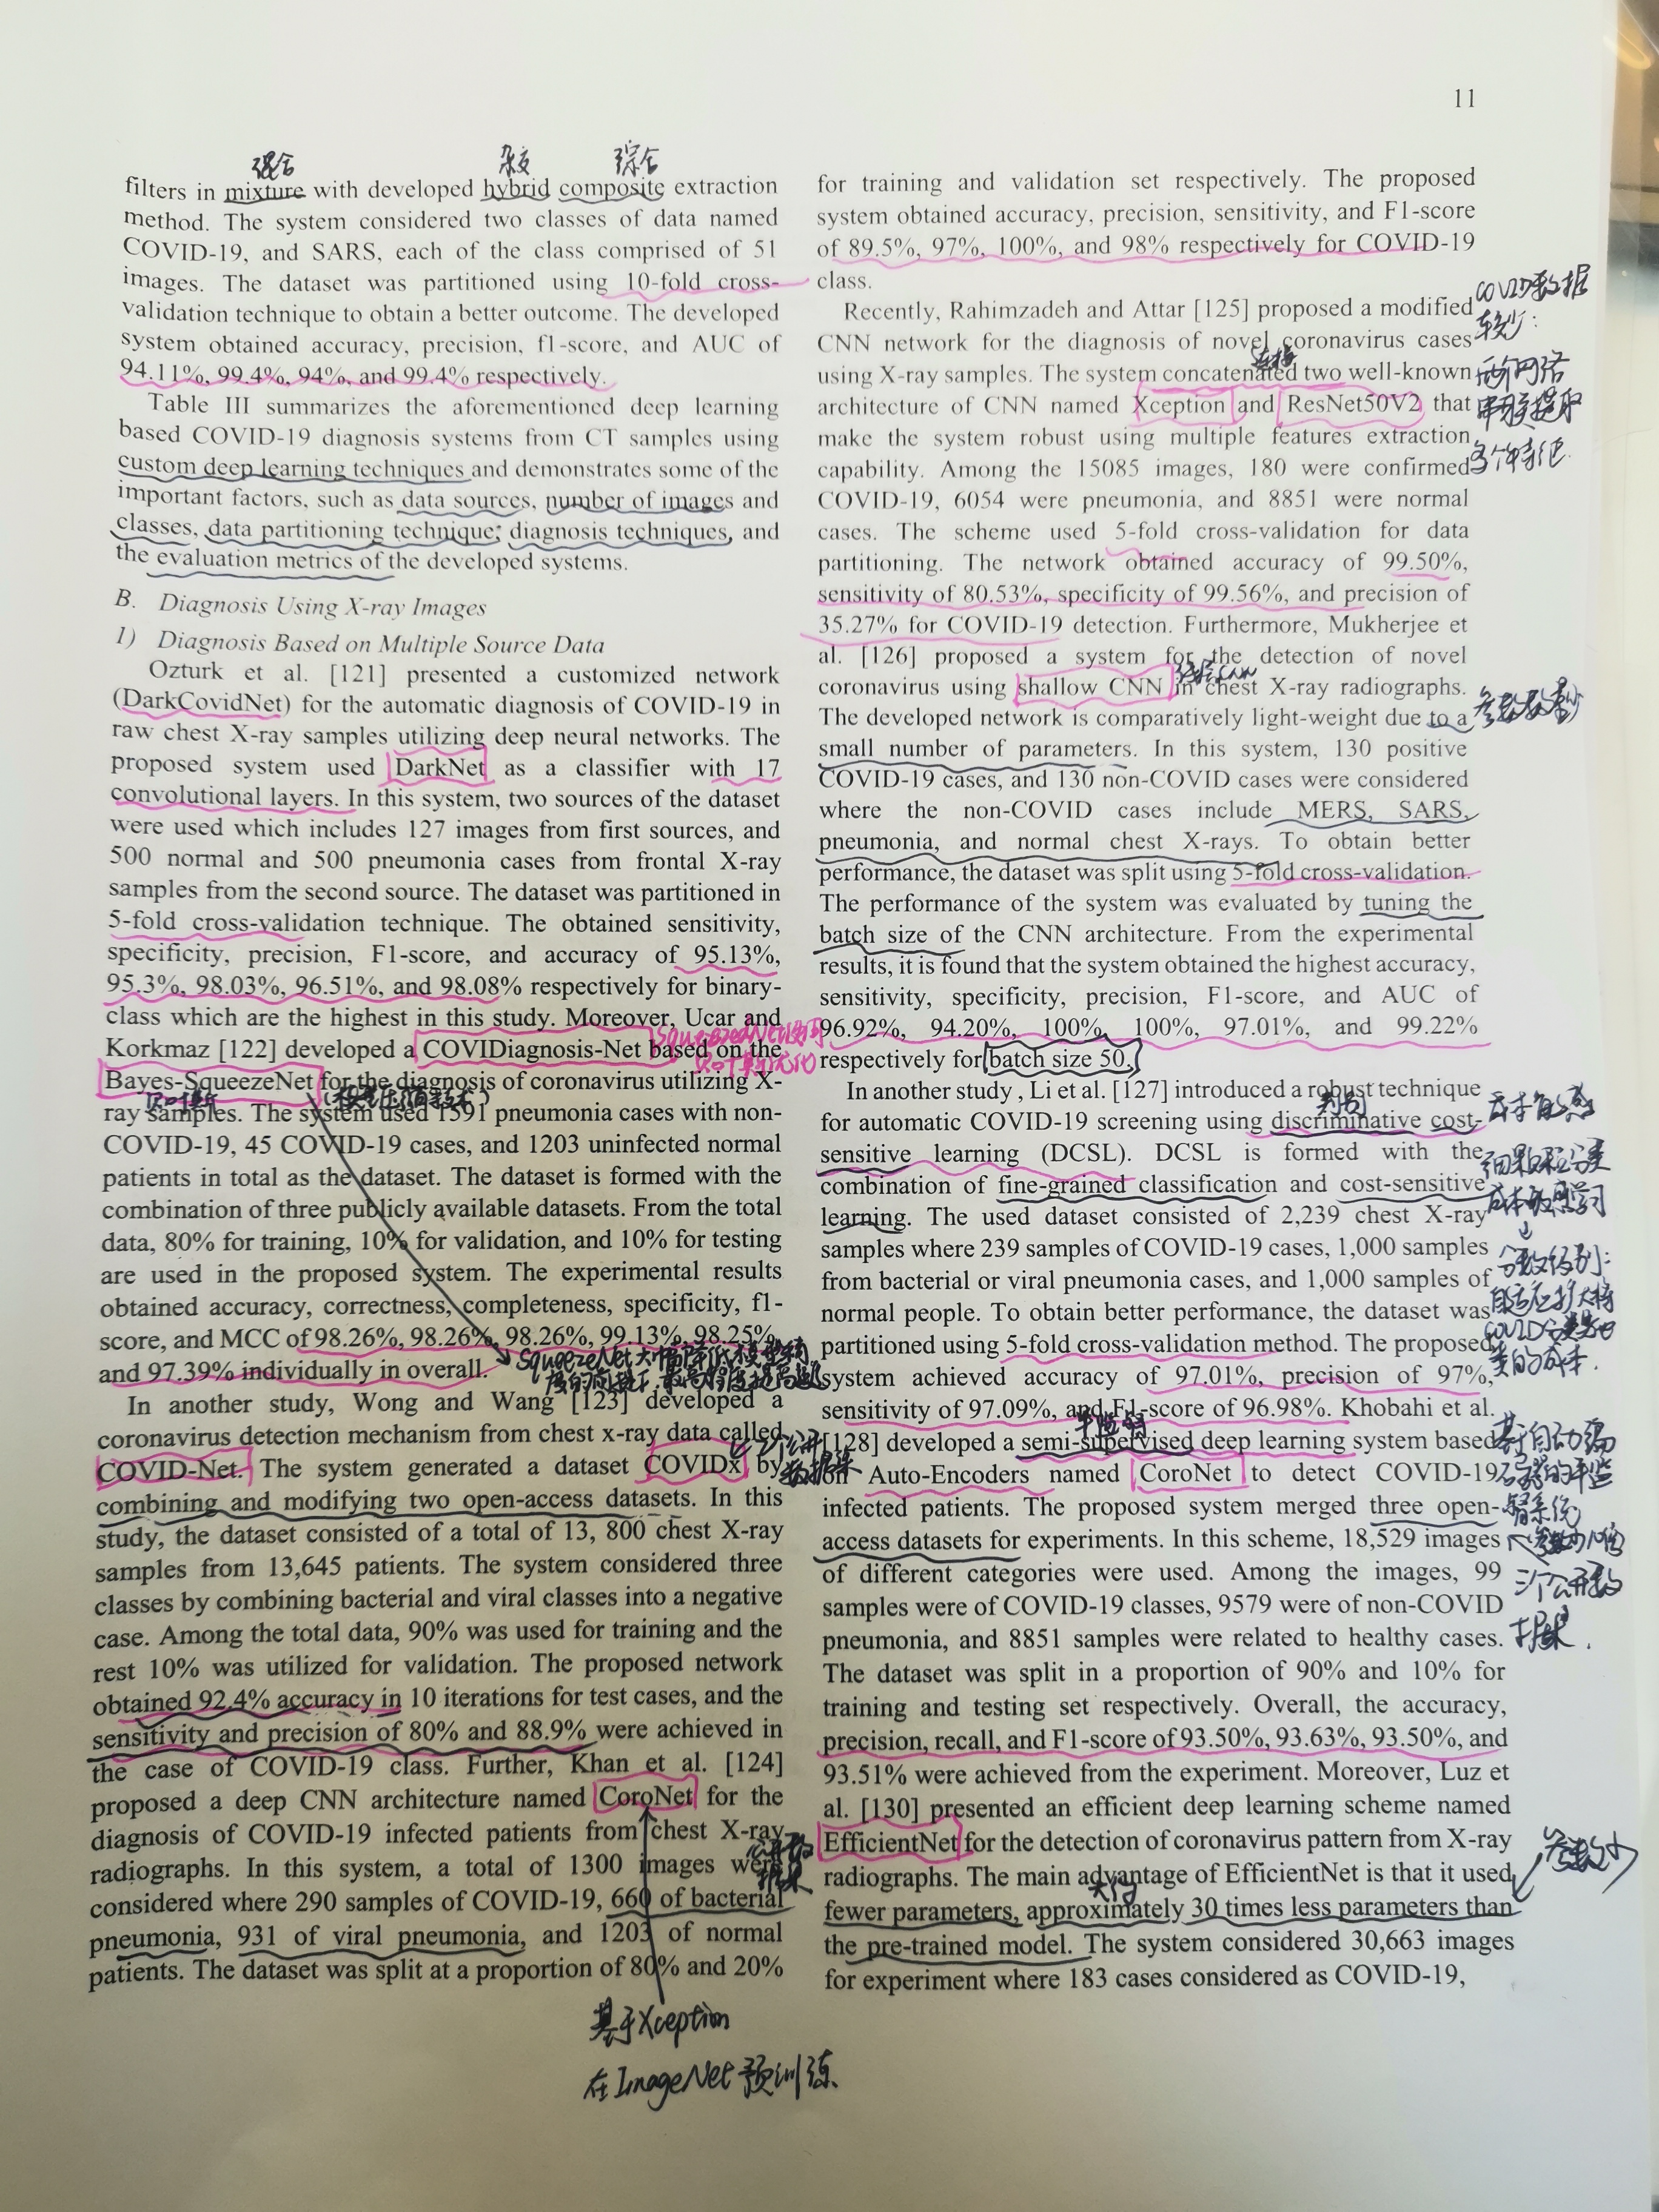 11
混合 杂交 综合
filters in mixture with developed hybrid composite extraction
method. The system considered two classes of data named
COVID-19, and SARS, each of the class comprised of 51
images. The dataset was partitioned using 10-fold cross-
validation technique to obtain a better outcome. The developed
system obtained accuracy, precision, f1-score, and AUC of
94.11%, 99.4%, 94%, and 99.4% respectively.
Table III summarizes the aforementioned deep learning
based COVID-19 diagnosis systems from CT samples using
custom deep learning techniques and demonstrates some of the
important factors, such as data sources, number of images and
classes, data partitioning technique, diagnosis techniques, and
the evaluation metrics of the developed systems.
B. Diagnosis Using X-ray Images
1) Diagnosis Based on Multiple Source Data
Ozturk et al. [121] presented a customized network
(DarkCovidNet) for the automatic diagnosis of COVID-19 in
raw chest X-ray samples utilizing deep neural networks. The
proposed system used DarkNet as a classifier with 17
convolutional layers. In this system, two sources of the dataset
were used which includes 127 images from first sources, and
500 normal and 500 pneumonia cases from frontal X-ray
samples from the second source. The dataset was partitioned in
5-fold cross-validation technique. The obtained sensitivity,
specificity, precision, F1-score, and accuracy of 95.13%,
95.3%, 98.03%, 96.51%, and 98.08% respectively for binary-
class which are the highest in this study. Moreover, Ucar and
Korkmaz [122] developed a COVIDiagnosis-Net based on the
Bayes-SqueezeNet for the diagnosis of coronavirus utilizing X-
ray samples. The system used 1591 pneumonia cases with non-
COVID-19, 45 COVID-19 cases, and 1203 uninfected normal
patients in total as the dataset. The dataset is formed with the
combination of three publicly available datasets. From the total
data, 80% for training, 10% for validation, and 10% for testing
are used in the proposed system. The experimental results
obtained accuracy, correctness, completeness, specificity, f1-
score, and MCC of 98.26%, 98.26%, 98.26%, 99.13%, 98.25%,
and 97.39% individually in overall.
In another study, Wong and Wang [123] developed a
coronavirus detection mechanism from chest x-ray data called
COVID-Net. The system generated a dataset COVIDx by
combining and modifying two open-access datasets. In this
study, the dataset consisted of a total of 13, 800 chest X-ray
samples from 13,645 patients. The system considered three
classes by combining bacterial and viral classes into a negative
case. Among the total data, 90% was used for training and the
rest 10% was utilized for validation. The proposed network
obtained 92.4% accuracy in 10 iterations for test cases, and the
sensitivity and precision of 80% and 88.9% were achieved in
the case of COVID-19 class. Further, Khan et al. [124]
proposed a deep CNN architecture named CoroNet for the
diagnosis of COVID-19 infected patients from chest X-ray
radiographs. In this system, a total of 1300 images were
considered where 290 samples of COVID-19, 660 of bacterial
pneumonia, 931 of viral pneumonia, and 1203 of normal
patients. The dataset was split at a proportion of 80% and 20%
基于Xception
在ImageNet预训练
for training and validation set respectively. The proposed
system obtained accuracy, precision, sensitivity, and F1-score
of 89.5%, 97%, 100%, and 98% respectively for COVID-19
class.
Recently, Rahimzadeh and Attar [125] proposed a modified
CNN network for the diagnosis of novel coronavirus cases
using X-ray samples. The system concatenated two well-known
architecture of CNN named Xception and ResNet50V2 that
make the system robust using multiple features extraction
capability. Among the 15085 images, 180 were confirmed
COVID-19, 6054 were pneumonia, and 8851 were normal
cases. The scheme used 5-fold cross-validation for data
partitioning. The network obtained accuracy of 99.50%,
sensitivity of 80.53%, specificity of 99.56%, and precision of
35.27% for COVID-19 detection. Furthermore, Mukherjee et
al. [126] proposed a system for the detection of novel
coronavirus using shallow CNN in chest X-ray radiographs.
The developed network is comparatively light-weight due to a
small number of parameters. In this system, 130 positive
COVID-19 cases, and 130 non-COVID cases were considered
where the non-COVID cases include MERS, SARS,
pneumonia, and normal chest X-rays. To obtain better
performance, the dataset was split using 5-fold cross-validation.
The performance of the system was evaluated by tuning the
batch size of the CNN architecture. From the experimental
results, it is found that the system obtained the highest accuracy,
sensitivity, specificity, precision, F1-score, and AUC of
96.92%, 94.20%, 100%, 100%, 97.01%, and 99.22%
respectively for batch size 50.
In another study , Li et al. [127] introduced a robust technique
for automatic COVID-19 screening using discriminative cost-
sensitive learning (DCSL). DCSL is formed with the
combination of fine-grained classification and cost-sensitive
learning. The used dataset consisted of 2,239 chest X-ray
samples where 239 samples of COVID-19 cases, 1,000 samples
from bacterial or viral pneumonia cases, and 1,000 samples of
normal people. To obtain better performance, the dataset was
partitioned using 5-fold cross-validation method. The proposed
system achieved accuracy of 97.01%, precision of 97%,
sensitivity of 97.09%, and F1-score of 96.98%. Khobahi et al.
[128] developed a semi-supervised deep learning system based
on Auto-Encoders named CoroNet to detect COVID-19
infected patients. The proposed system merged three open-
access datasets for experiments. In this scheme, 18,529 images
of different categories were used. Among the images, 99
samples were of COVID-19 classes, 9579 were of non-COVID
pneumonia, and 8851 samples were related to healthy cases.
The dataset was split in a proportion of 90% and 10% for
training and testing set respectively. Overall, the accuracy,
precision, recall, and F1-score of 93.50%, 93.63%, 93.50%, and
93.51% were achieved from the experiment. Moreover, Luz et
al. [130] presented an efficient deep learning scheme named
EfficientNet for the detection of coronavirus pattern from X-ray
radiographs. The main advantage of EfficientNet is that it used
fewer parameters, approximately 30 times less parameters than
the pre-trained model. The system considered 30,663 images
for experiment where 183 cases considered as COVID-19,
COVID数据
较少:
两个网络
串联提取
多个特征
参数少